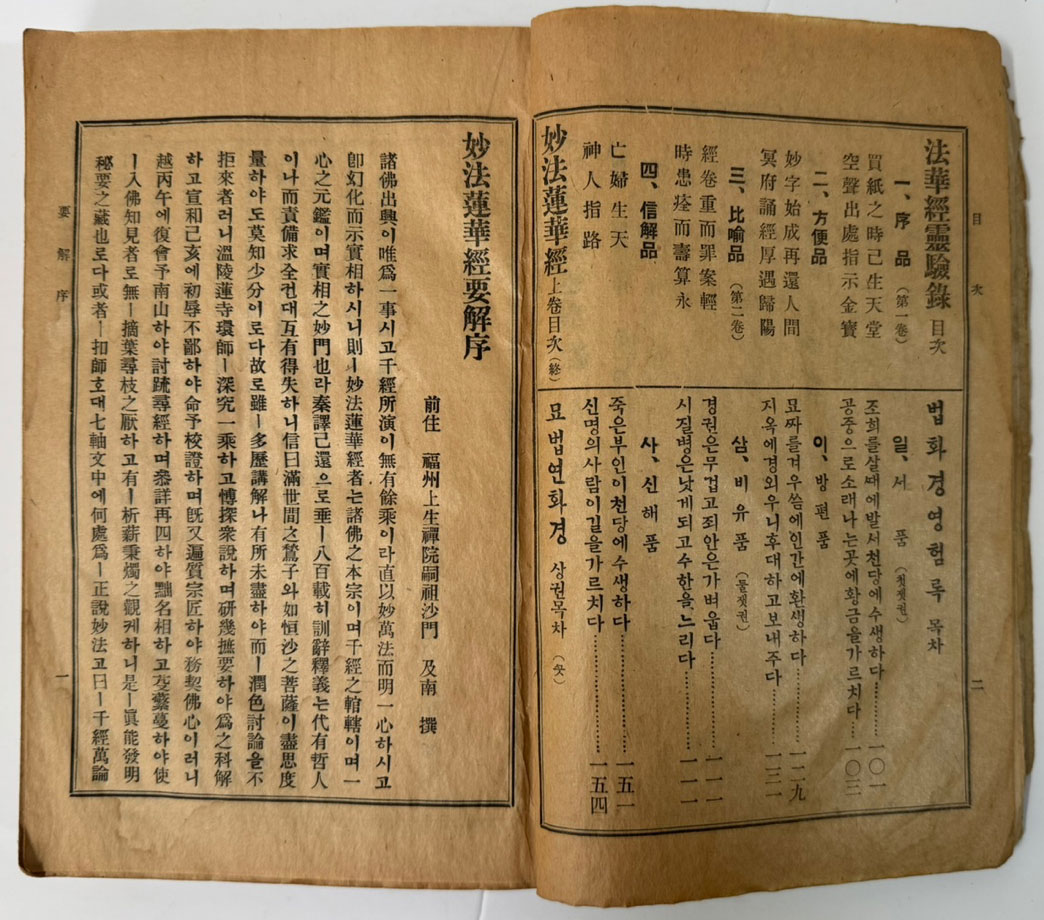 目次
法華經靈驗錄 目次
一、序品 (第一卷)
買紙之時己生天堂
空聲出處指示金寶
二、方便品
妙字始成再還人間
冥府誦經厚遇歸陽
三、比喻品 (第二卷)
經卷重而罪案輕
時患痊而壽算永
四、信解品
亡婦生天
神人指路
妙法蓮華經上卷目次(終)
법화경영험록 목차
일、서품 (첫잿권)
조희를살때에발서천당에수생하다……一〇一
공중으로소래나는곳에황금을가르치다…一〇三
이、방편품
묘짜를겨우씀에인간에환생하다……一二九
지옥에경외우니후대하고보내주다……一三一
삼、비유품 (둘잿권)
경권은무겁고죄안은가벼웁다……一一一
시질병은낫게되고수한을느리다……一一一
사、신해품
죽은부인이천당에수생하다……一五一
신명의사람이길을가르치다……一五四
묘법연화경 상권목차 (끗)
二
妙法蓮華經要解序
前住 福州上生禪院嗣祖沙門 及南 撰
諸佛出興이唯爲一事시고千經所演이無有餘乘이라直以妙萬法而明一心하시고
卽幻化而示實相하시니則ㅣ妙法蓮華經者는諸佛之本宗이며千經之輨轄이며一
心之元鑑이며實相之妙門也라秦譯己還으로垂ㅣ八百載히訓辭釋義는代有哲人
이나而責備求全컨대互有得失하니信曰滿世間之鶖子와如恒沙之菩薩이盡思度
量하야도莫知少分이로다故로雖ㅣ多歷講解나有所未盡하야而ㅣ潤色討論을不
拒來者러니溫陵蓮寺環師ㅣ深究一乘하고博探衆說하며硏幾摭要하야爲之科解
하고宣和己亥에初辱不鄙하야命予校證하며旣又遍質宗匠하야務契佛心이러니
越丙午에復會予南山하야討䟽尋經하며叅詳再四하야黜名相하고芟蘩蔓하야使
ㅣ入佛知見者로無ㅣ摘葉尋枝之厭하고有ㅣ析薪秉燭之觀케하니是ㅣ眞能發明
秘要之藏也로다或者ㅣ扣師호대七軸文中에何處爲ㅣ正說妙法고曰ㅣ千經萬論
要解序
一